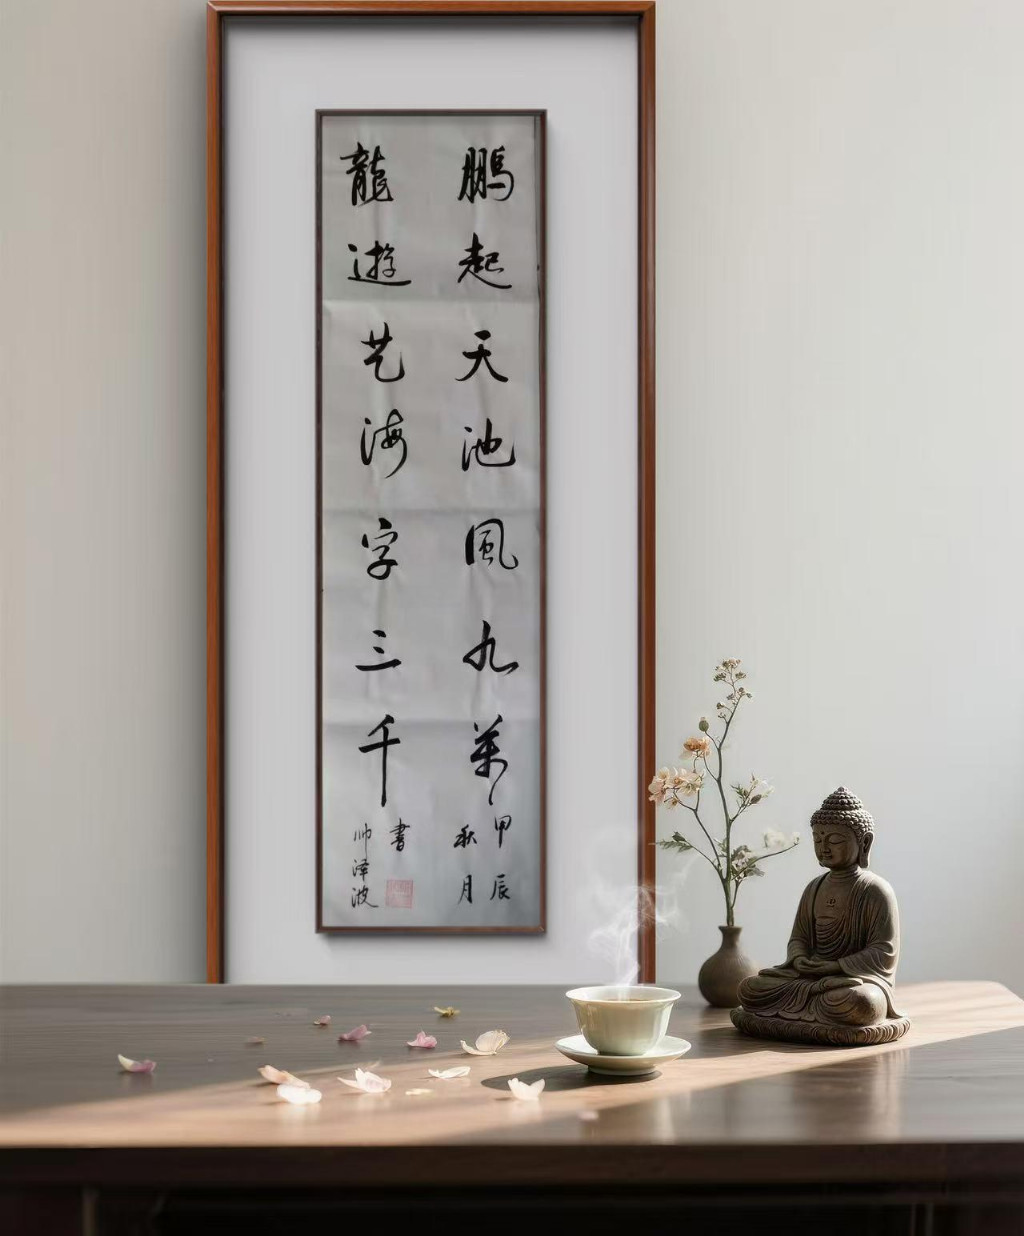 鵬起天池風九萬
龍遊艺海字三千
甲辰
秋月
書
帅泽波